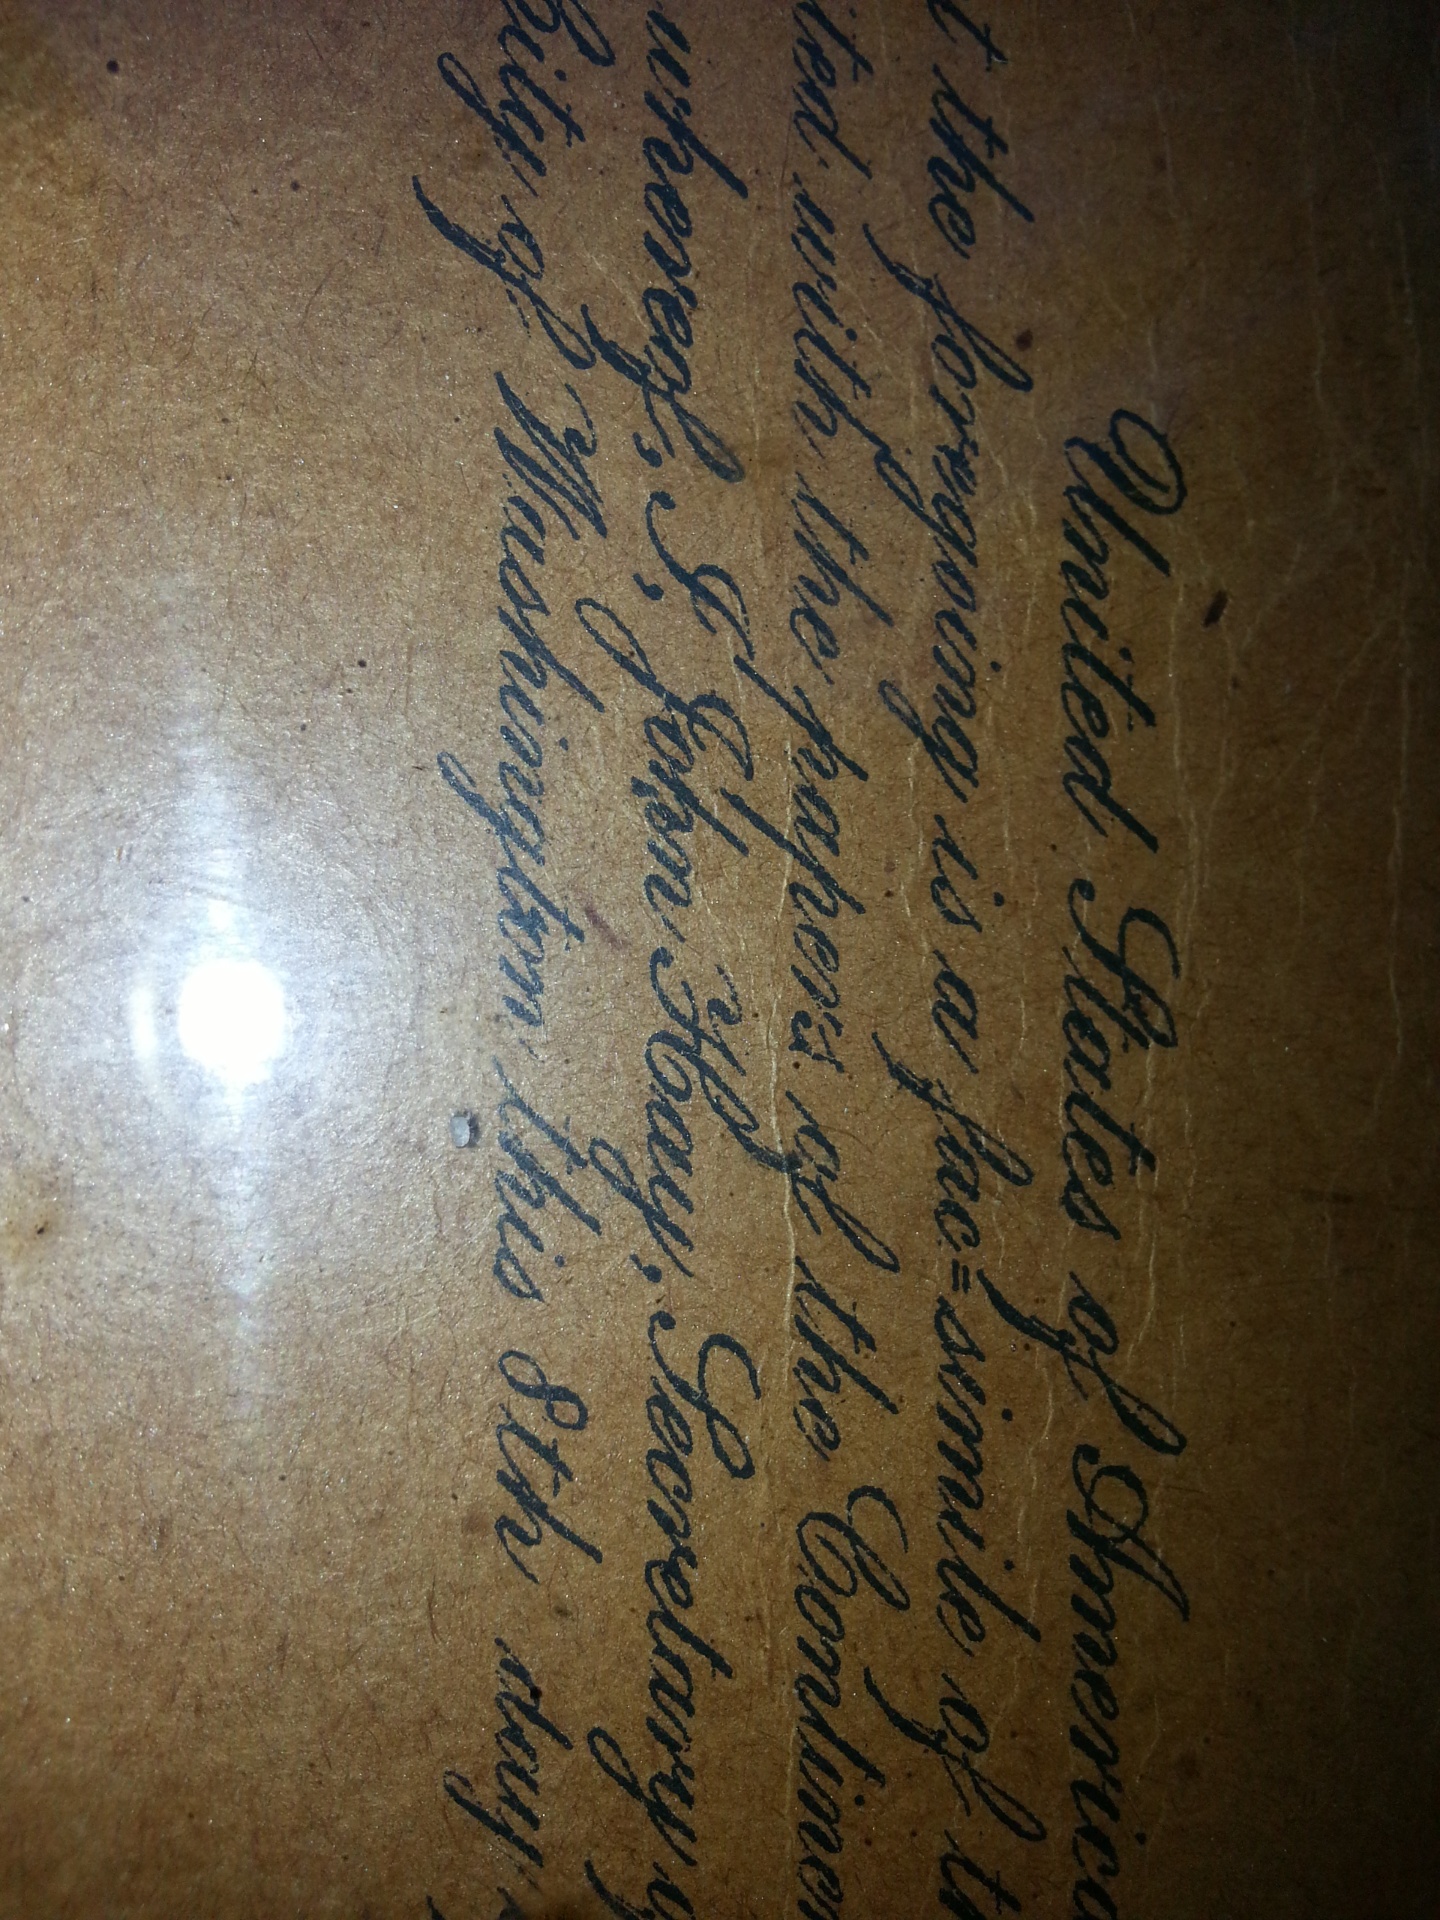 United States of America
t the foregoing is a fac=simile of t
ted with the papers of the Contine
whereof, I, John Hay, Secretary
City of Washington this 8th day